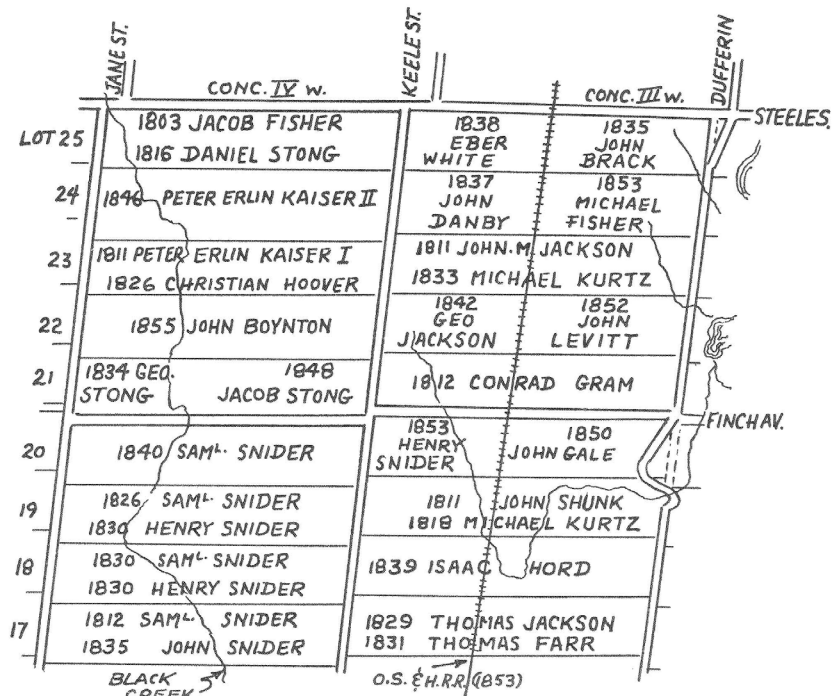 JANE ST.
KEELE ST.
DUFFERIN
CONC. IV W.
CONC. III W.
STEELES.
LOT 25
1803 JACOB FISHER
1816 DANIEL STONG
1838
EBER
WHITE
1835
JOHN
BRACK
24
1846 PETER ERLIN KAISER II
1837
JOHN
DANBY
1853
MICHAEL
FISHER
23
1811 PETER ERLIN KAISER I
1826 CHRISTIAN HOOVER
1811 JOHN.M. JACKSON
1833 MICHAEL KURTZ
22
1855 JOHN BOYNTON
1842
GEO
JACKSON
1852
JOHN
LEVITT
21
1834 GEO.
STONG
1848
JACOB STONG
1812 CONRAD GRAM
FINCH AV.
20
1840 SAML. SNIDER
1853
HENRY
SNIDER
1850
JOHN GALE
19
1826 SAML. SNIDER
1830 HENRY SNIDER
1811 JOHN SHUNK
1818 MICHAEL KURTZ
18
1830 SAML. SNIDER
1830 HENRY SNIDER
1839 ISAAC HORD
17
1812 SAML. SNIDER
1835 JOHN SNIDER
1829 THOMAS JACKSON
1831 THOMAS FARR
BLACK
CREEK
O.S. & H.R.R. (1853)